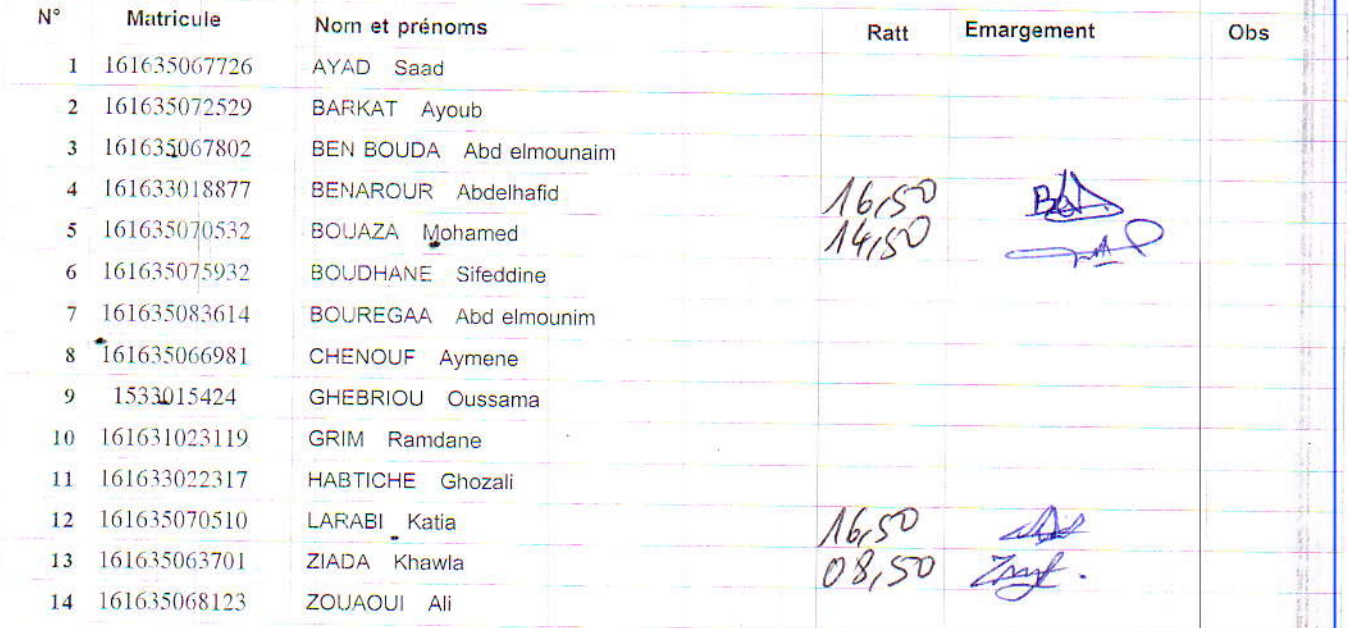 N° Matricule Nom et prénoms Ratt Emargement Obs
1 161635067726 AYAD Saad
2 161635072529 BARKAT Ayoub
3 161635067802 BEN BOUDA Abd elmounaim
4 161633018877 BENAROUR Abdelhafid 16,50
5 161635070532 BOUAZA Mohamed 14,50
6 161635075932 BOUDHANE Sifeddine
7 161635083614 BOUREGAA Abd elmounim
8 161635066981 CHENOUF Aymene
9 1533015424 GHEBRIOU Oussama
10 161631023119 GRIM Ramdane
11 161633022317 HABTICHE Ghozali
12 161635070510 LARABI Katia 16,50
13 161635063701 ZIADA Khawla 08,50
14 161635068123 ZOUAOUI Ali